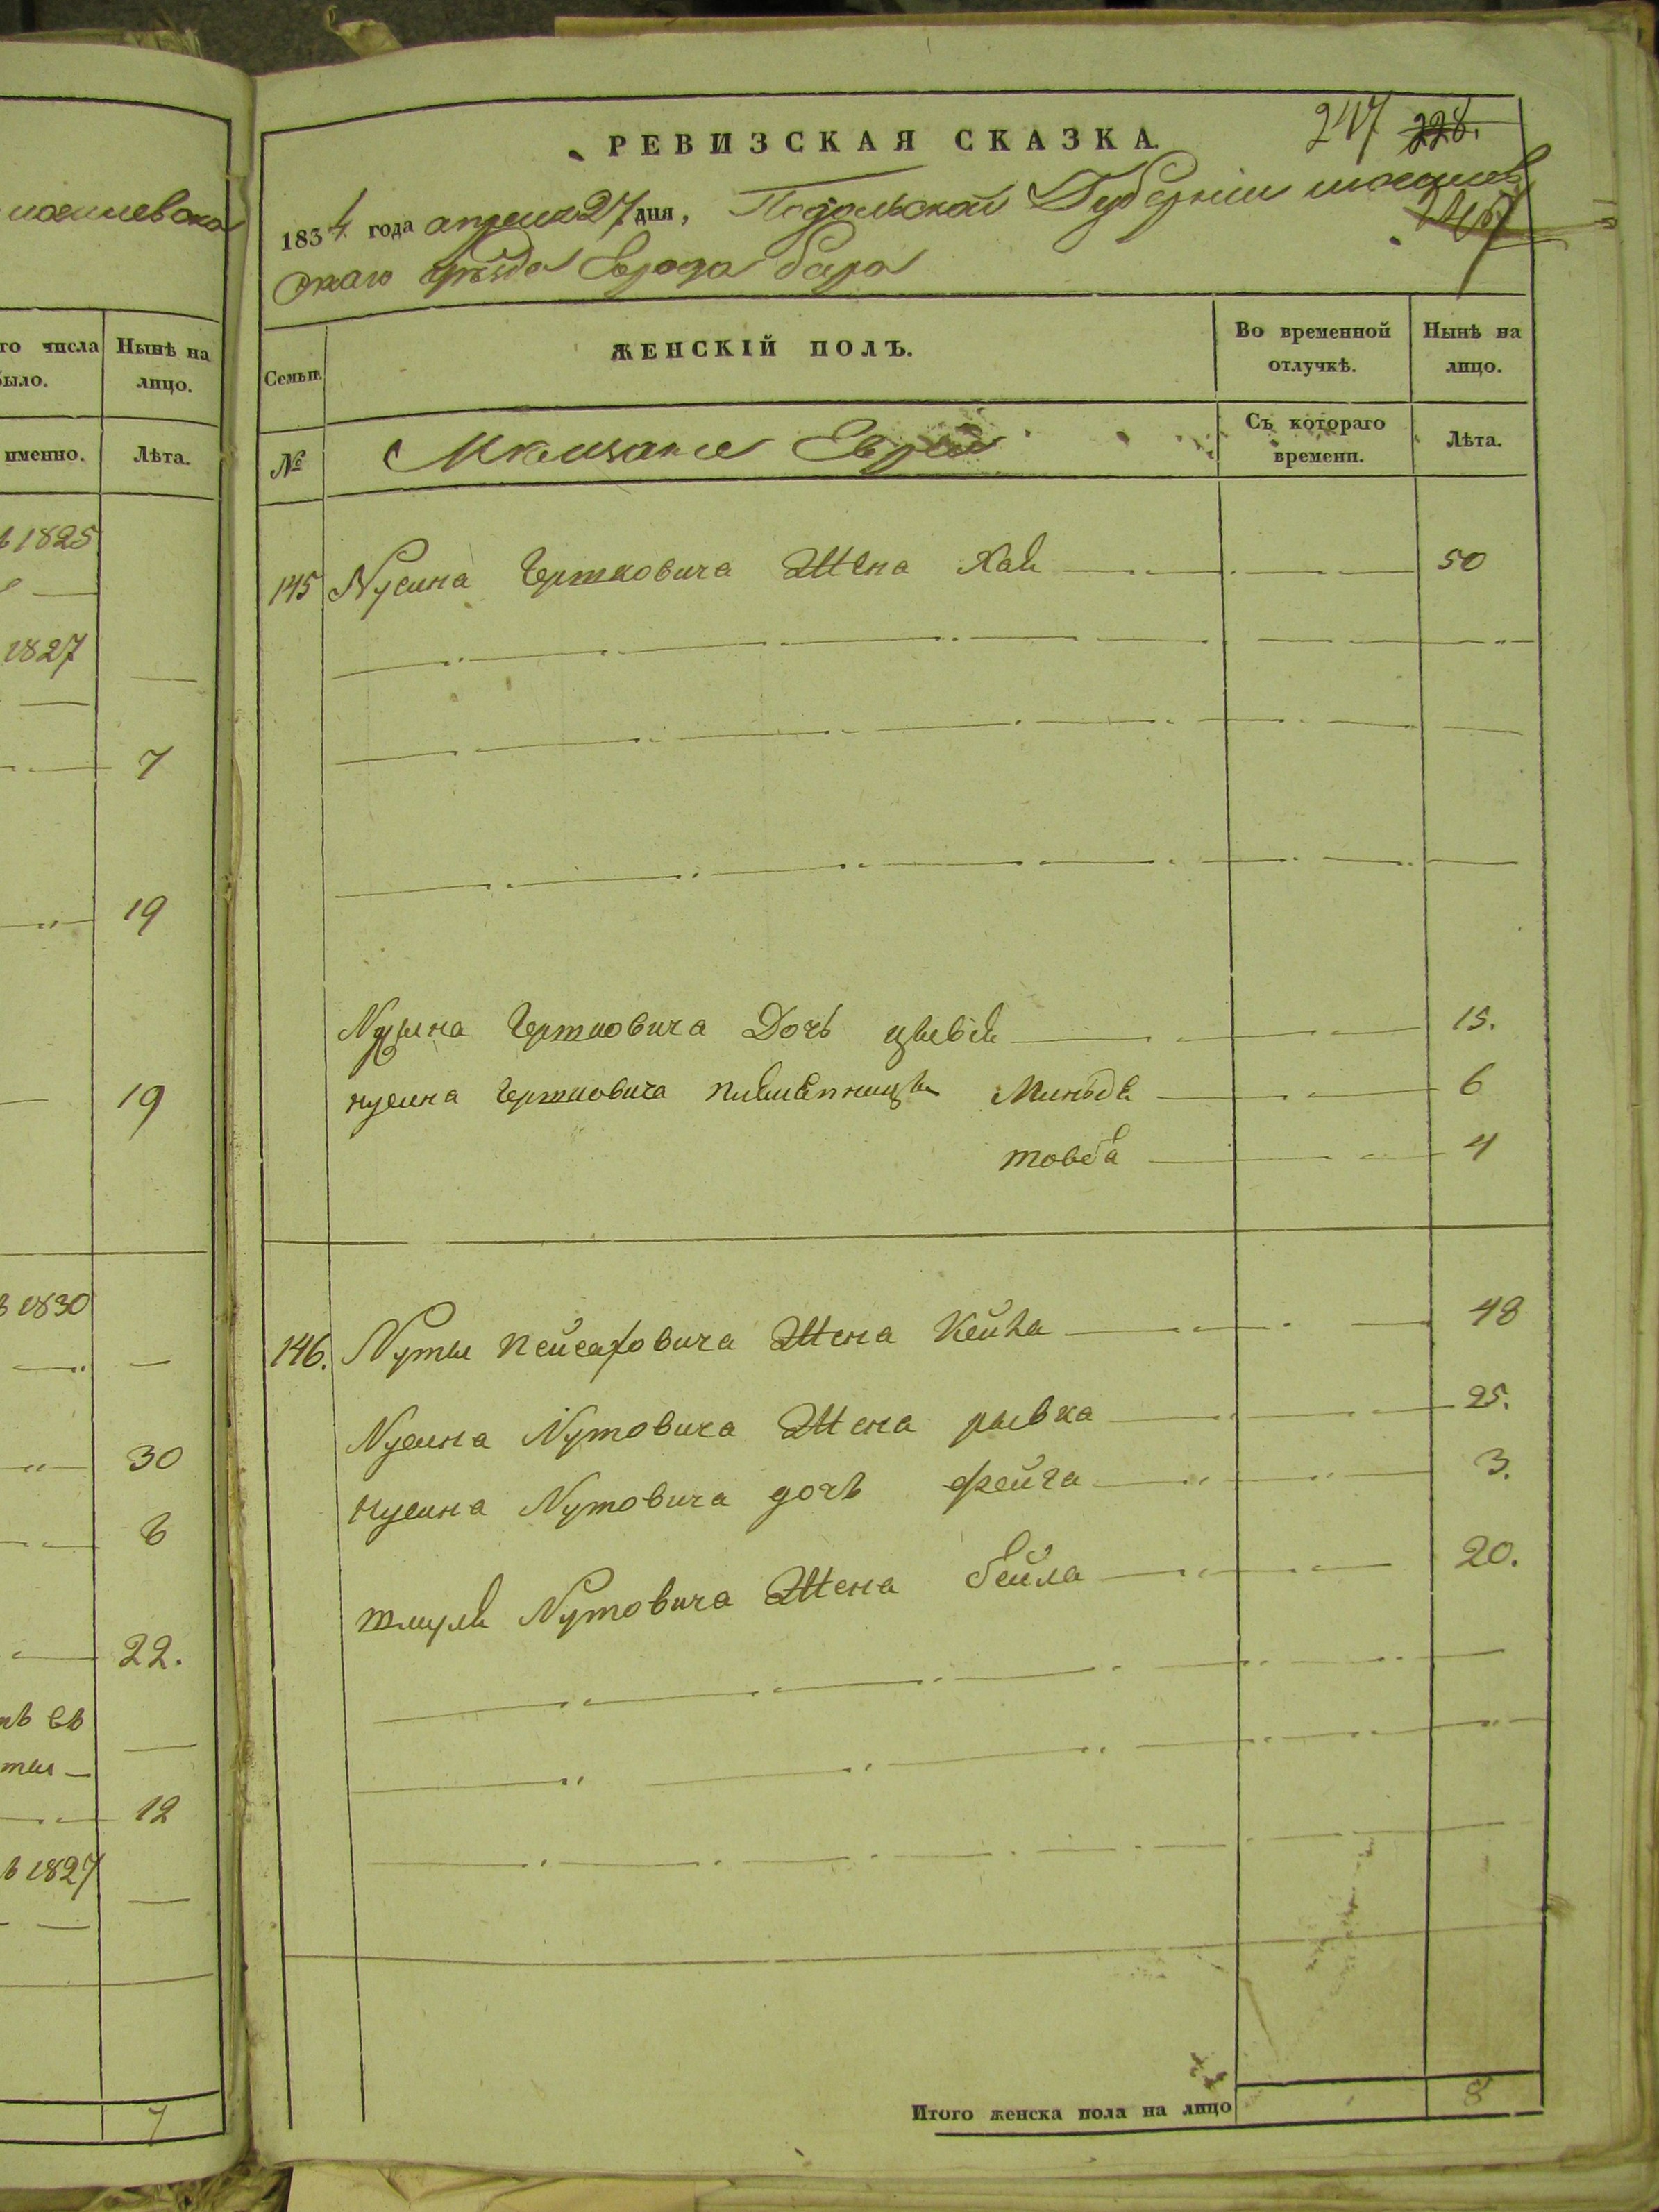 го числа
Нынѣ на
было.
лицо.
именно.
Лѣта.
1825
1827
7
19
19
1830
30
6
22.
12
1827
7
РЕВИЗСКАЯ СКАЗКА.
247 228.
1834 года апреля 27 дня, Подольской Губерніи
скаго уѣзда города бара
Семьи.
ЖЕНСКІЙ ПОЛЪ.
Во временной отлучкѣ.
Нынѣ на лицо.
№
Мещане Евреи
Съ котораго времени.
Лѣта.
145 Нусина Гершковича Жена Хая 50
Нусина Гершковича Дочь 15.
нусина Гершковича 6
товба 4
146. Нуты пейсаховича Жена 48
Нусина Нутовича Жена рывка 25.
нусина Нутовича дочь фейга 3.
шмуля Нутовича Жена бейла 20.
Итого женска пола на лицо 8